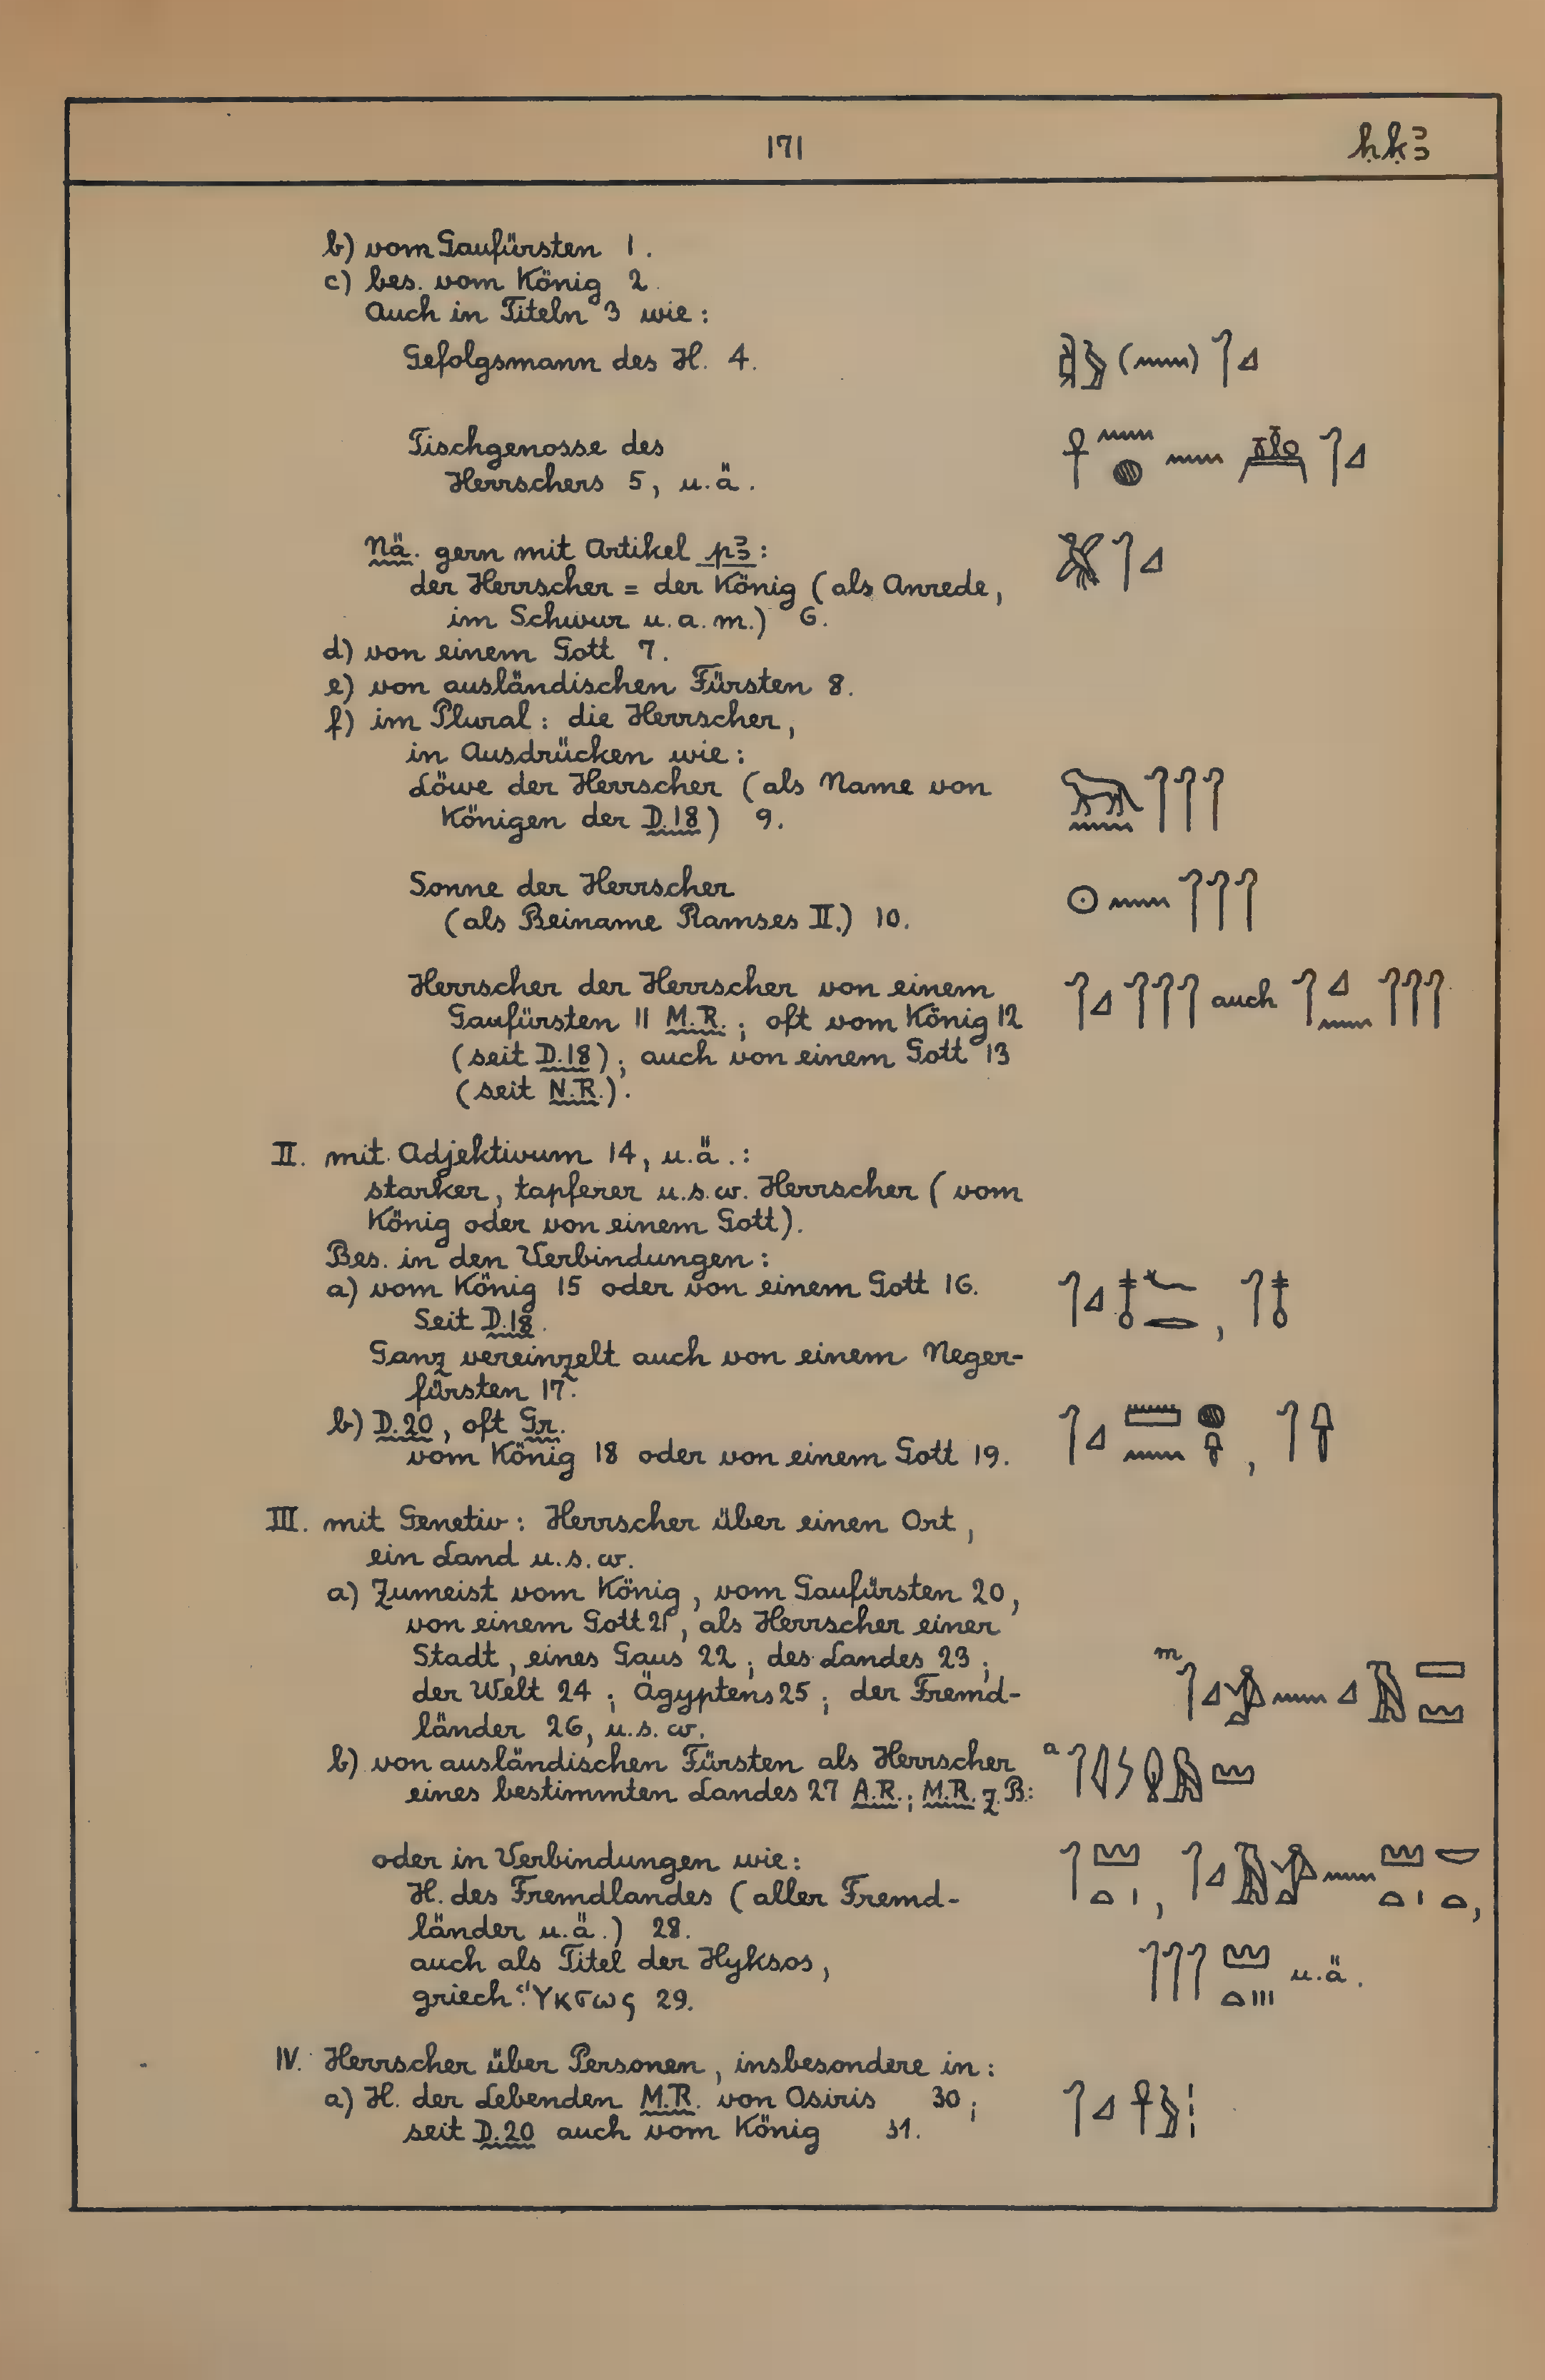 171 ḥḳꜣ
b) vom Gaufürsten 1.
c) bes. vom König 2.
Auch in Titeln 3 wie:
Gefolgsmann des H. 4.
Tischgenosse des
Herrschers 5, u.ä.
Nä. gern mit Artikel pꜣ:
der Herrscher = der König (als Anrede,
im Schwur u.a.m.) 6.
d) von einem Gott 7.
e) von ausländischen Fürsten 8.
f) im Plural: die Herrscher,
in Ausdrücken wie:
Löwe der Herrscher (als Name von
Königen der D.18) 9.
Sonne der Herrscher
(als Beiname Ramses II.) 10.
Herrscher der Herrscher von einem auch
Gaufürsten 11 M.R.; oft vom König 12
(seit D.18); auch von einem Gott 13
(seit N.R.).
II. mit Adjektivum 14, u.ä.:
starker, tapferer u.s.w. Herrscher (vom
König oder von einem Gott).
Bes. in den Verbindungen:
a) vom König 15 oder von einem Gott 16.
Seit D.18.
Ganz vereinzelt auch von einem Neger-
fürsten 17.
b) D.20, oft Gr.
vom König 18 oder von einem Gott 19.
III. mit Genetiv: Herrscher über einen Ort,
ein Land u.s.w.
a) Zumeist vom König, vom Gaufürsten 20,
von einem Gott 21, als Herrscher einer
Stadt, eines Gaus 22; des Landes 23; m
der Welt 24; Ägyptens 25; der Fremd-
länder 26, u.s.w.
b) von ausländischen Fürsten als Herrscher a
eines bestimmten Landes 27 A.R.; M.R. z.B.:
oder in Verbindungen wie:
H. des Fremdlandes (aller Fremd-
länder u.ä.) 28.
auch als Titel der Hyksos, u.ä.
griech. Ὑκσως 29.
IV. Herrscher über Personen, insbesondere in:
a) H. der Lebenden M.R. von Osiris 30;
seit D.20 auch vom König 31.